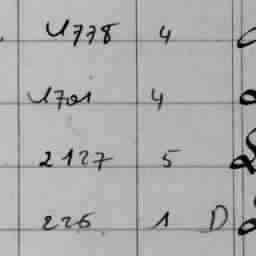 4778 4
4701 4
2127 5
226 1 D